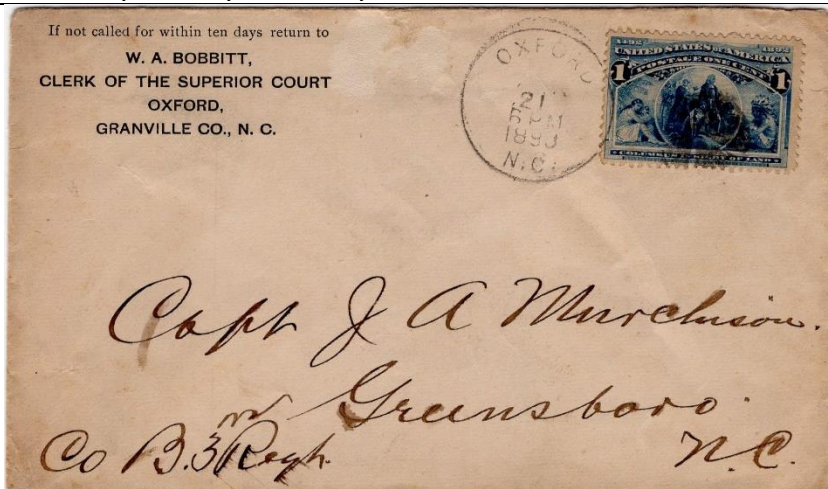 If not called for within ten days return to
W. A. BOBBITT,
CLERK OF THE SUPERIOR COURT
OXFORD,
GRANVILLE CO., N. C.
OXFORD
21
1893
N.C.
1492 1892
UNITED STATES OF AMERICA
POSTAGE ONE CENT
1 1
COLUMBUS IN SIGHT OF LAND
Capt J A Murchison.
Greensboro.
Co B. 3rd Regt. N.C.